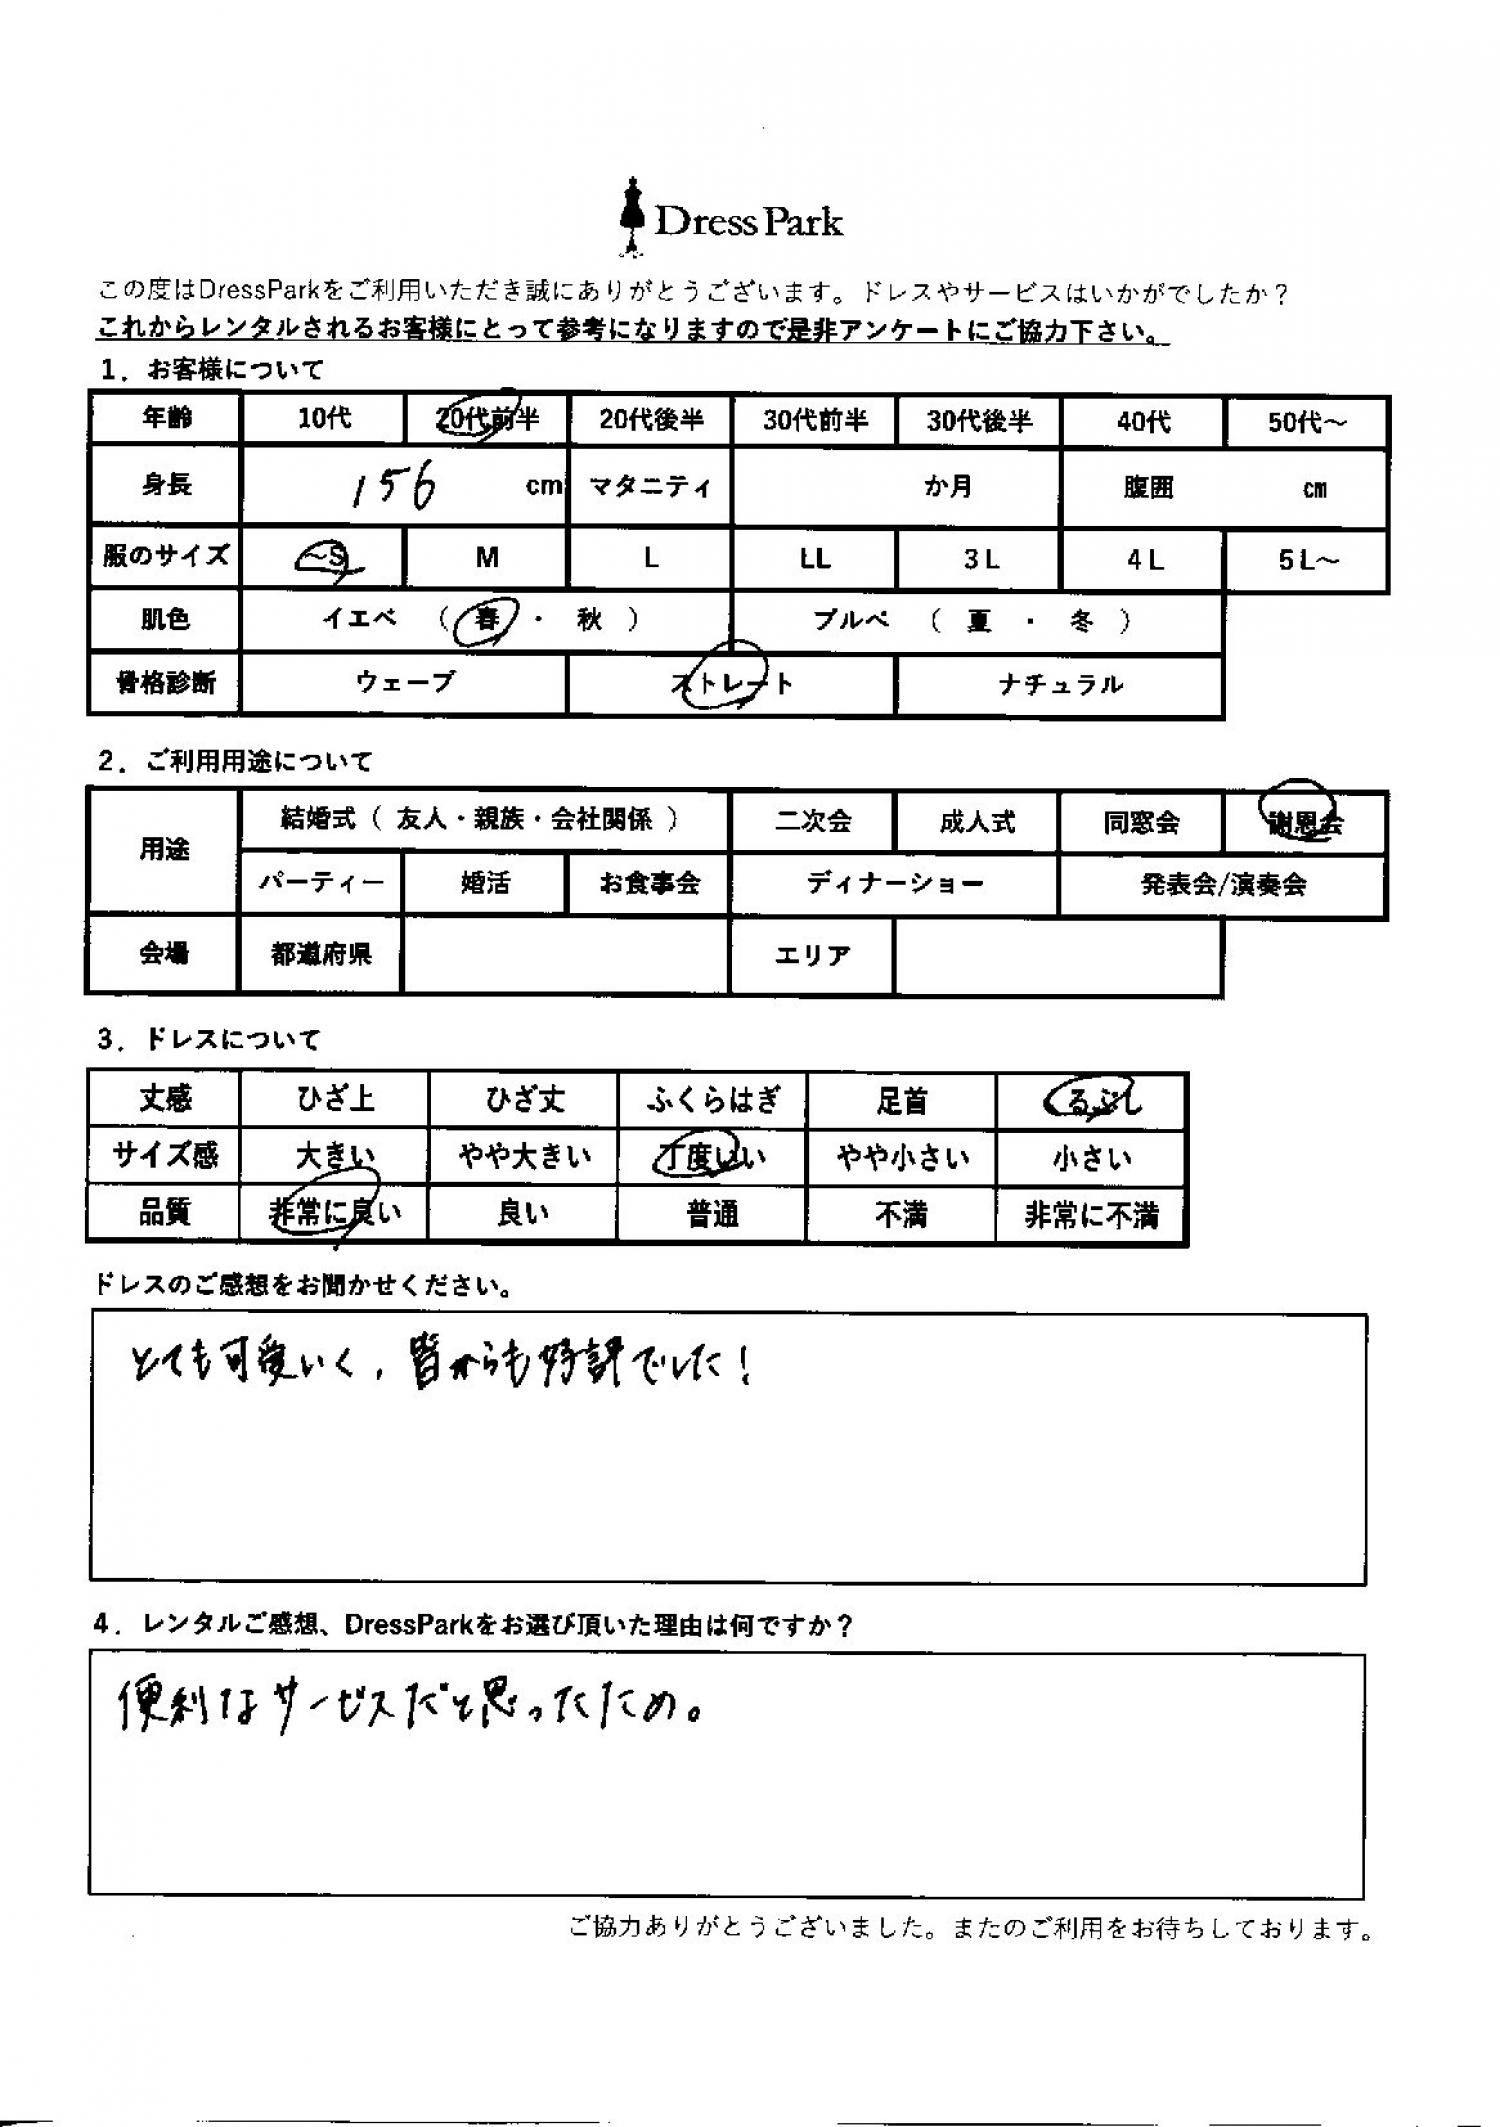 Dress Park
この度はDressParkをご利用いただき誠にありがとうございます。ドレスやサービスはいかがでしたか?
これからレンタルされるお客様にとって参考になりますので是非アンケートにご協力下さい。
1. お客様について
年齢 10代 20代前半 20代後半 30代前半 30代後半 40代 50代~
身長 156 cm マタニティ か月 腹囲 cm
服のサイズ ~S M L LL 3L 4L 5L~
肌色 イエベ ( 春 ・ 秋 ) ブルベ ( 夏 ・ 冬 )
骨格診断 ウェーブ ストレート ナチュラル
2. ご利用用途について
用途 結婚式 ( 友人・親族・会社関係 ) 二次会 成人式 同窓会 謝恩会
パーティー 婚活 お食事会 ディナーショー 発表会/演奏会
会場 都道府県 エリア
3. ドレスについて
丈感 ひざ上 ひざ丈 ふくらはぎ 足首 くるぶし
サイズ感 大きい やや大きい 丁度いい やや小さい 小さい
品質 非常に良い 良い 普通 不満 非常に不満
ドレスのご感想をお聞かせください。
とても可愛いく、皆からも好評でした!
4. レンタルご感想、DressParkをお選び頂いた理由は何ですか?
便利なサービスだと思ったため。
ご協力ありがとうございました。またのご利用をお待ちしております。